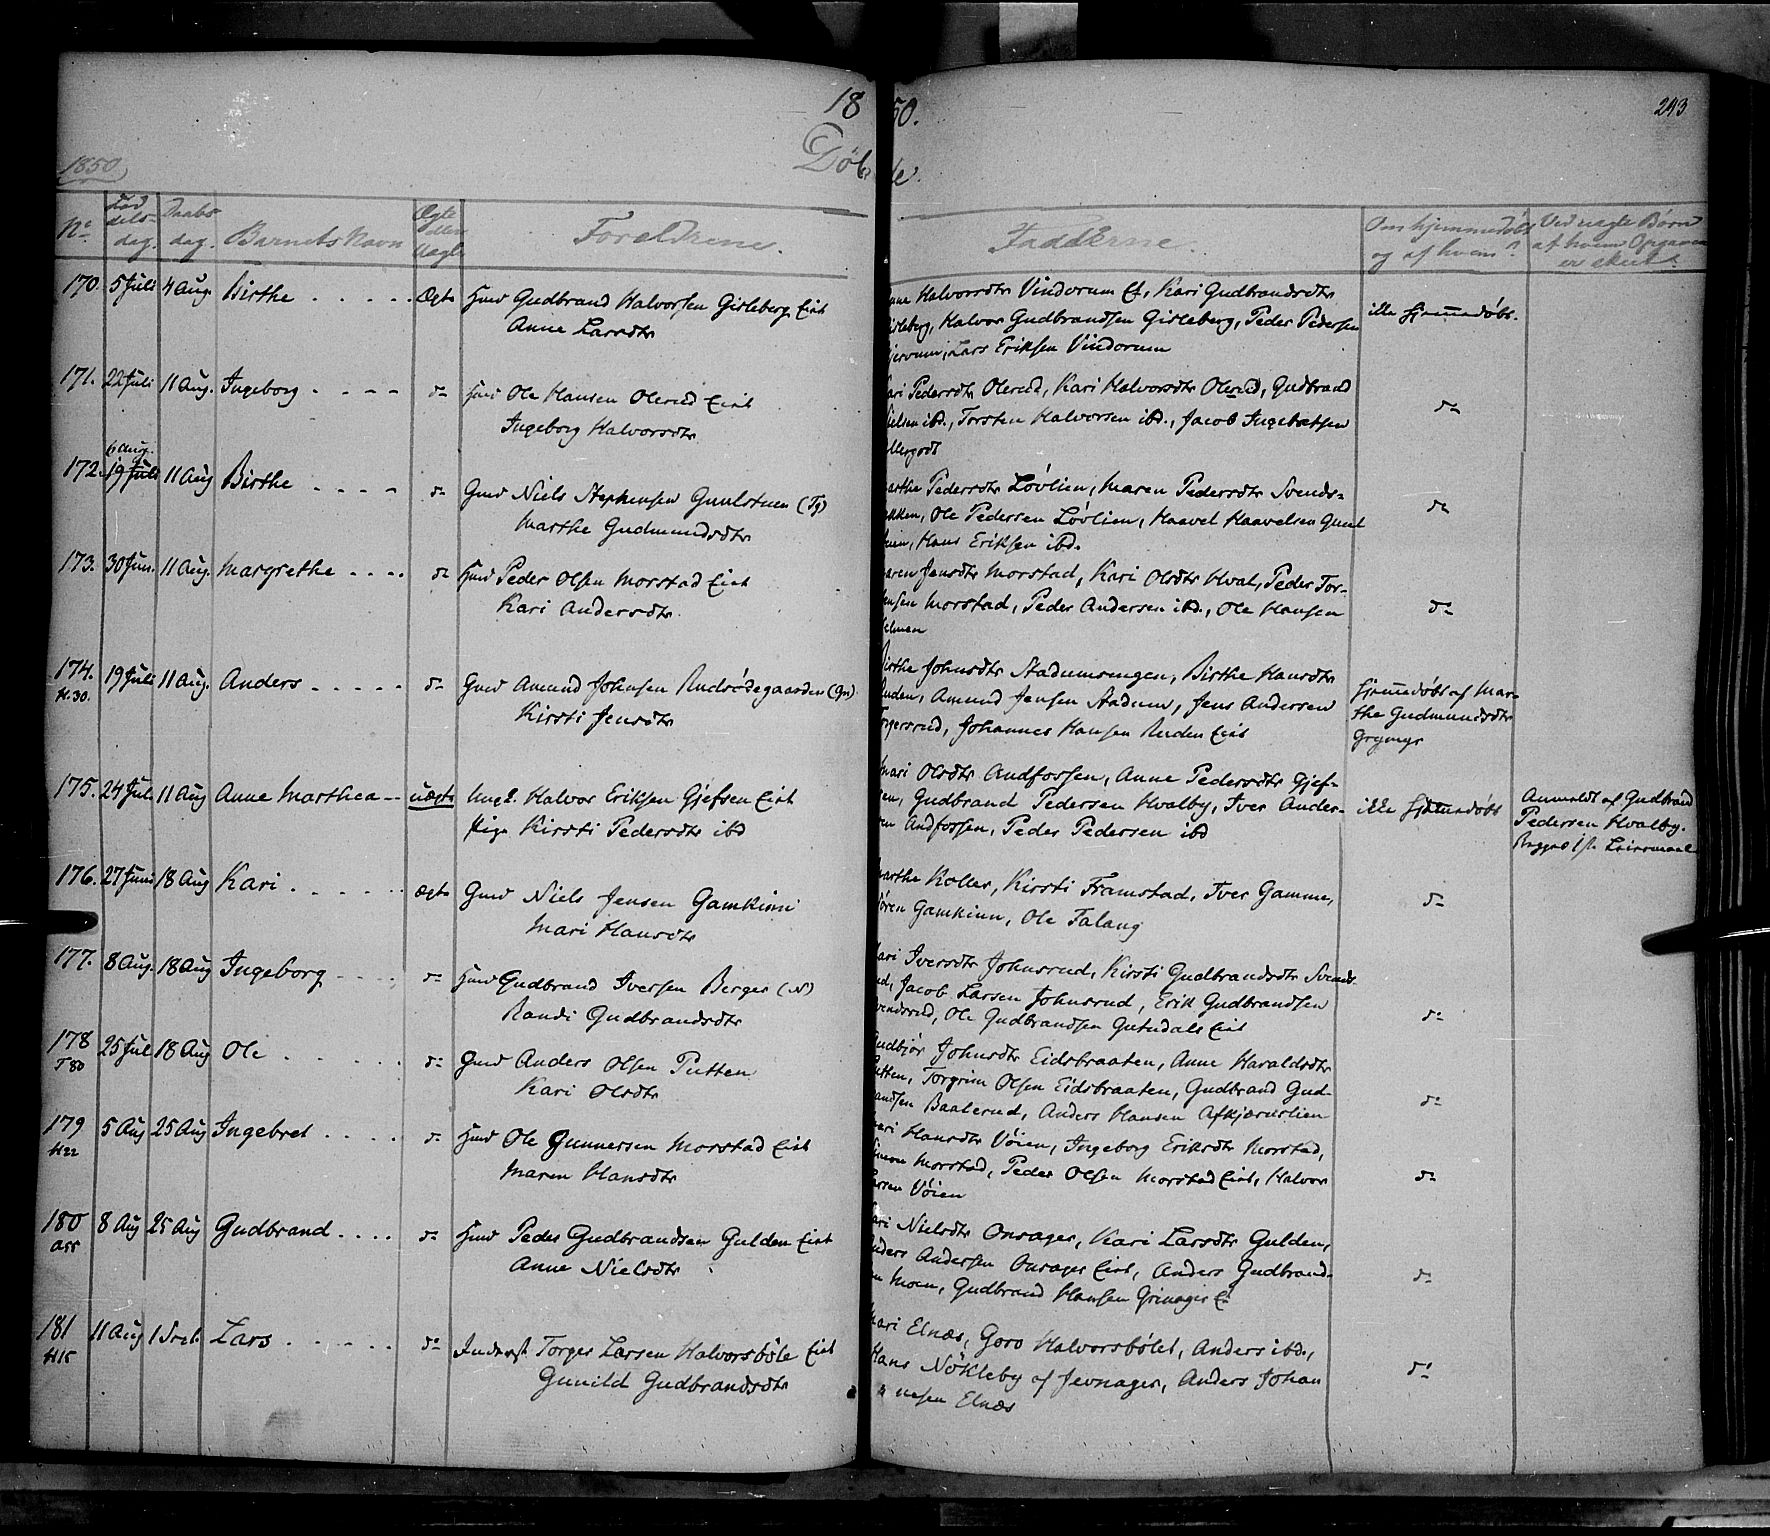 1850.
243
1850
Døbte.
No.
Fødselsdag.
Daabsdag.
Barnets Navn
Ægte eller Uægte
Forældrene.
Fadderne.
Om hjemmedøbt og af hvem?
Ved uægte Børn af hvem Opgaven er skeet.
170. 5 Juli 4 Aug. Birthe Ægte Huusm Gudbrand Halvorsen Gisleberg Eiet
Anne Larsdtr
Halvorsdtr Vindorum Et, Kari Gudbrandsdtr
Halvor Gudbrandsen Gisleberg, Peder Pedersen
Lars Eriksen Vindorum
ikke hjemmedøbt.
171. 22 Juli 11 Aug. Ingeborg do Ole Hansen Olerud Eiet
Ingeborg Halvorsdtr
Pedersdtr Olerud, Kari Halvorsdtr Olerud, Gudbrand
ibd., Torsten Halvorsen ibd., Jacob Ingebretsen
do
6 Aug.
172. 19 Juli 11 Aug Birthe do Gmd Niels Stephensen (Tg)
Marthe Gudmundsdtr
Pedersdtr Løvlien, Maren Pedersdtr Svends-
Ole Pedersen Løvlien, Haavel Haavelsen
Hans Eriksen ibd.
do
173. 30 Jun. 11 Aug. Margrethe do Peder Olsen Morstad Eiet
Kari Andersdtr
Jensdtr Morstad, Kari Olsdtr Hval, Peder Tor-
Morstad, Peder Andersen ibd., Ole Hansen
do
174. 19 Juli 11 Aug. Anders do Gmd Amund Johnsen Rudsødegaarden (Gr)
H.30. Kirsti Jensdtr
Johnsdtr Stadumsengen, Birthe Hansdtr
Amund Jensen Stadum, Jens Andersen
Johannes Hansen Ruden Eiet
hjemmedøbt af Mar-
the Gudmundsdtr
Grymyr
175. 24 Jul. 11 Aug Anne Marthea uægte Ungk. Halvor Eriksen Gjefsen Eiet
Pige Kirsti Pedersdtr ibd
Olsdtr Andfossen, Anne Pedersdtr Gjef-
Gudbrand Pedersen Hvalby, Iver Ander-
Andfossen, Peder Pedersen ibd
ikke hjemmedøbt
Anmeldt af Gudbrand
Pedersen Hvalby.
Begges 1ste Leiermaal
176. 27 Juni 18 Aug Kari ægte Gmd Niels Jensen Gamkinn
Mari Hansdtr
Marthe Koller, Kirsti Framstad, Iver Gamme,
Søren Gamkinn, Ole Talang
do
177. 8 Aug. 18 Aug Ingeborg do Gudbrand Iversen Berger (N)
Randi Gudbrandsdtr
Iversdtr Johnsrud, Kirsti Gudbrandsdtr Svends-
rud, Jacob Larsen Johnsrud, Erik Gudbrandsen
Svendsrud, Ole Gudbrandsen Eiet
do
178 25 Jul 18 Aug Ole do Gmd Anders Olsen Putten
T 80 Kari Olsdtr
Gudbjør Johnsdtr Eidsbraaten, Anne Haraldsdtr
Putten, Torgrim Olsen Eidsbraaten, Gudbrand Gud-
brandsen Baalerud, Anders Hansen Afkjærnslien
do
179 5 Aug 25 Aug Ingebret do Ole Gunnersen Morstad Eiet
H22 Maren Hansdtr
Hansdtr Vøien, Ingeborg Eriksdtr Morstad,
Morstad, Peder Olsen Morstad Eiet, Halvor
Larsen Vøien
do
180 8 Aug 25 Aug Gudbrand do Peder Gudbrandsen Gulden Eiet
Anne Nielsdtr
Nielsdtr Onsager, Kari Larsdtr Gulden,
Anders Andersen Onsager Eiet, Anders Gudbrand-
sen Moen, Gudbrand Hansen Grinager E
do
181 11 Aug 1 Sept. Lars do Inderst Torger Larsen Halvorsbøle Eiet
H15 Gunild Gudbrandsdtr
Mari Elnæs, Goro Halvorsbølet, Anders ibd.,
Hans Nøkleby af Jevnager, Anders Johan
nesen Elnæs
do